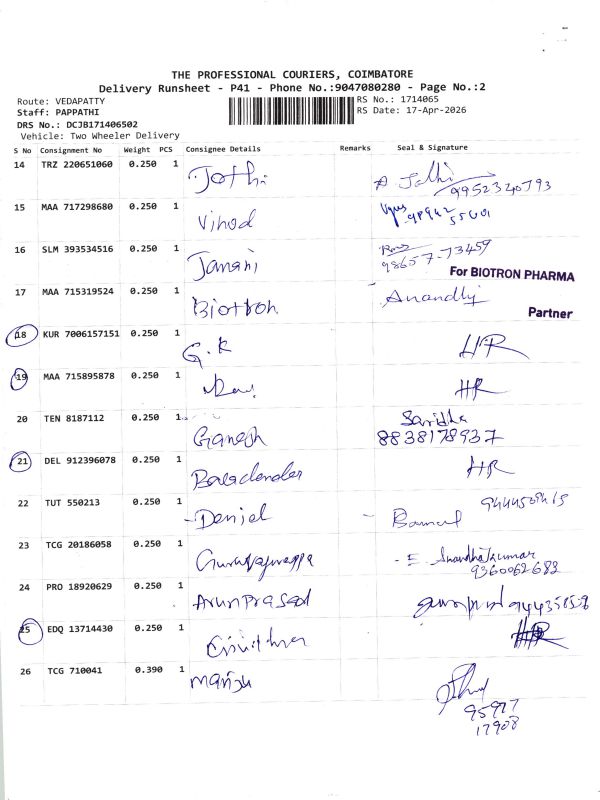 THE PROFESSIONAL COURIERS, COIMBATORE
Delivery Runsheet - P41 - Phone No.:9047080280 - Page No.:2
Route: VEDAPATTY
Staff: PAPPATHI
DRS No.: DCJB171406502
Vehicle: Two Wheeler Delivery
RS No.: 1714065
RS Date: 17-Apr-2026
S No Consignment No Weight PCS Consignee Details Remarks Seal & Signature
14 TRZ 220651060 0.250 1 Jothi 9952340793
15 MAA 717298680 0.250 1 Vinod
16 SLM 393534516 0.250 1 Janani 98657-73459
For BIOTRON PHARMA
17 MAA 715319524 0.250 1 Biotron Anandhi
Partner
18 KUR 7006157151 0.250 1 G.K HR
19 MAA 715895878 0.250 1 HR
20 TEN 8187112 0.250 1 Ganesh Saridha
8838178937
21 DEL 912396078 0.250 1 HR
22 TUT 550213 0.250 1 Denial
23 TCG 20186058 0.250 1 Anandhakumar
9360062683
24 PRO 18920629 0.250 1 Arunprasad
25 EDQ 13714430 0.250 1 HR
26 TCG 710041 0.390 1 Manju
95977
17908